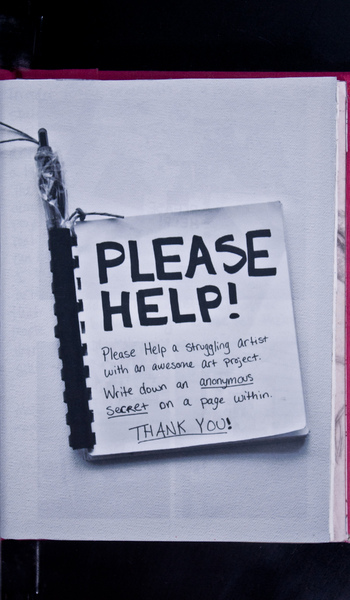 PLEASE
HELP!
Please Help a struggling artist
with an awesome art project.
Write down an anonymous
secret on a page within.
THANK YOU!